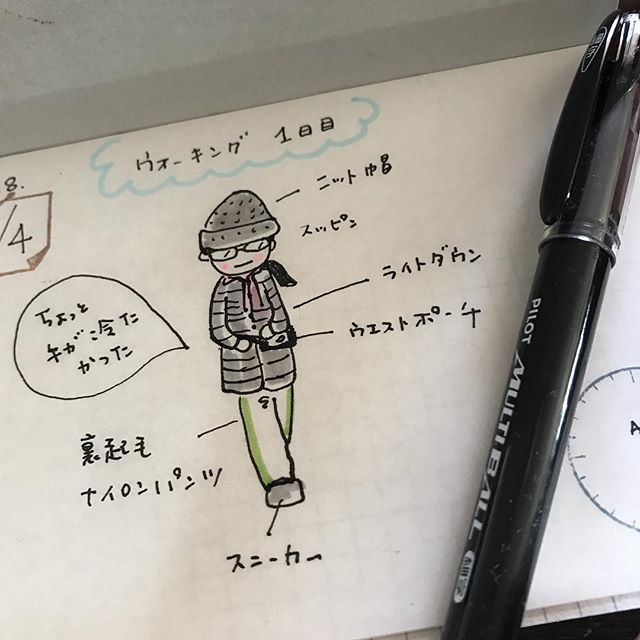 8.
/4
ウォーキング 1日目
ニット帽
スッピン
ライトダウン
ウエストポーチ
ちょっと
手が冷た
かった
裏起毛
ナイロンパンツ
スニーカー
PILOT MULTI BALL 細字
A